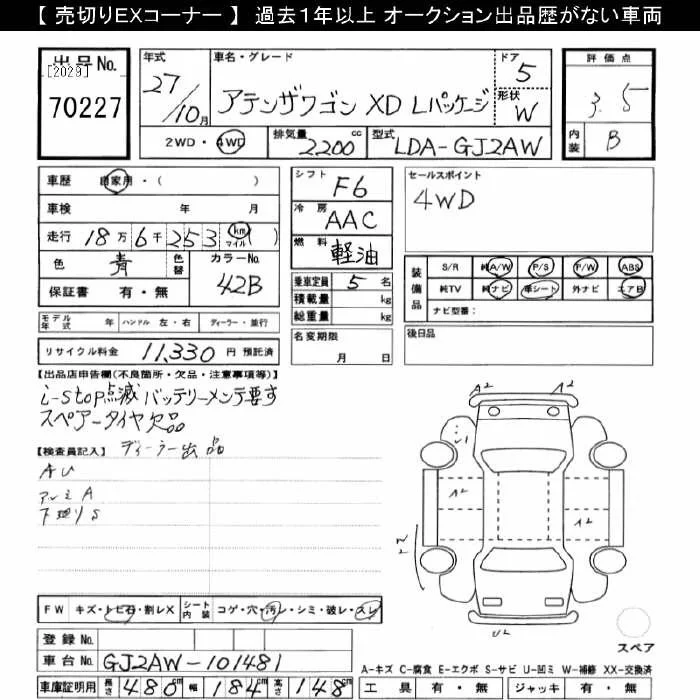 【 売切りEXコーナー 】 過去１年以上 オークション出品歴がない車両
出品No.
[2029]
70227
年式
27/10月
車名・グレード
アテンザワゴン XD Lパッケージ
ドア
5
形状
W
評価点
3.5
内装
B
2WD・4WD
排気量
2200 cc
型式
LDA-GJ2AW
車歴 自家用・( )
車検 年 月
走行 18万6千253 km マイル ( )
色 青 色替 カラーNo. 42B
保証書 有・無
シフト F6
冷房 AAC
燃料 軽油
乗車定員 5 名
積載量 kg
総重量 kg
セールスポイント
4WD
装備品
S/R 純A/W P/S P/W ABS
純TV 純ナビ 革シート 外ナビ エアB
ナビ型番:
モデル年式 年 ハンドル 左・右 ディーラー・並行
リサイクル料金 11,330 円 預託済
名変期限
月 日
後日品
【出品店申告欄(不良箇所・欠品・注意事項等)】
i-stop点滅 バッテリーメンテ要す
スペアータイヤ欠品
【検査員記入】 ディーラー出品
AU
アルミA
下廻りS
A2 A2
A2
A2
U2
FW キズ・トビ石・割レX シート内装 コゲ・穴・汚レ・シミ・破レ・スレ
登録No.
車台No. GJ2AW-101481
車庫証明用 長さ 480cm 幅 184cm 高さ 148cm
スペア
A-キズ C-腐食 E-エクボ S-サビ U-凹ミ W-補修 XX-交換済
工具 有・無 ジャッキ 有・無